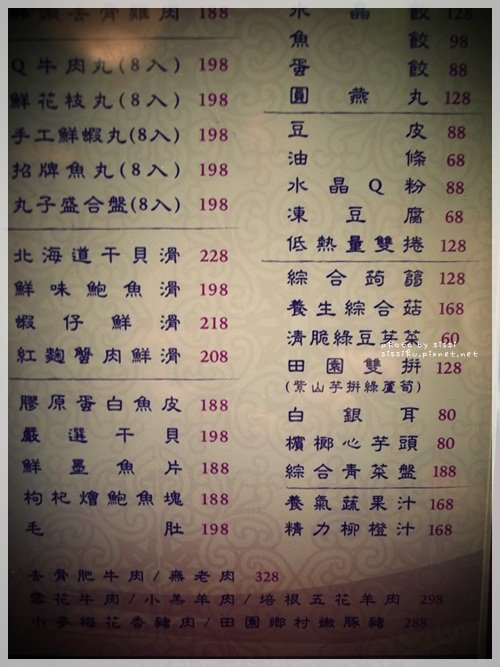 嫩去骨雞肉 188
Q牛肉丸(8入) 198
鮮花枝丸(8入) 198
手工鮮蝦丸(8入) 198
招牌魚丸(8入) 198
丸子盛合盤(8入) 198
北海道干貝滑 228
鮮味鮑魚滑 198
蝦仔鮮滑 218
紅麴蟹肉鮮滑 208
膠原蛋白魚皮 188
嚴選干貝 198
鮮墨魚片 188
枸杞燴鮑魚塊 188
毛肚 198
水晶餃 128
魚餃 98
蛋餃 88
圓燕丸 128
豆皮 88
油條 68
水晶Q粉 88
凍豆腐 68
低熱量雙捲 128
綜合蒟蒻 128
養生綜合菇 168
清脆綠豆芽菜 60
田園雙拼 128
(紫山芋拼綠蘆筍)
白銀耳 80
檳榔心芋頭 80
綜合青菜盤 188
養氣蔬果汁 168
精力柳橙汁 168
去骨肥牛肉/無老肉 328
雪花牛肉/小羔羊肉/培根五花羊肉 298
小麥梅花香豬肉/田園鄉村嫩豚豬 288
photo by sissi
sissiku.pixnet.net